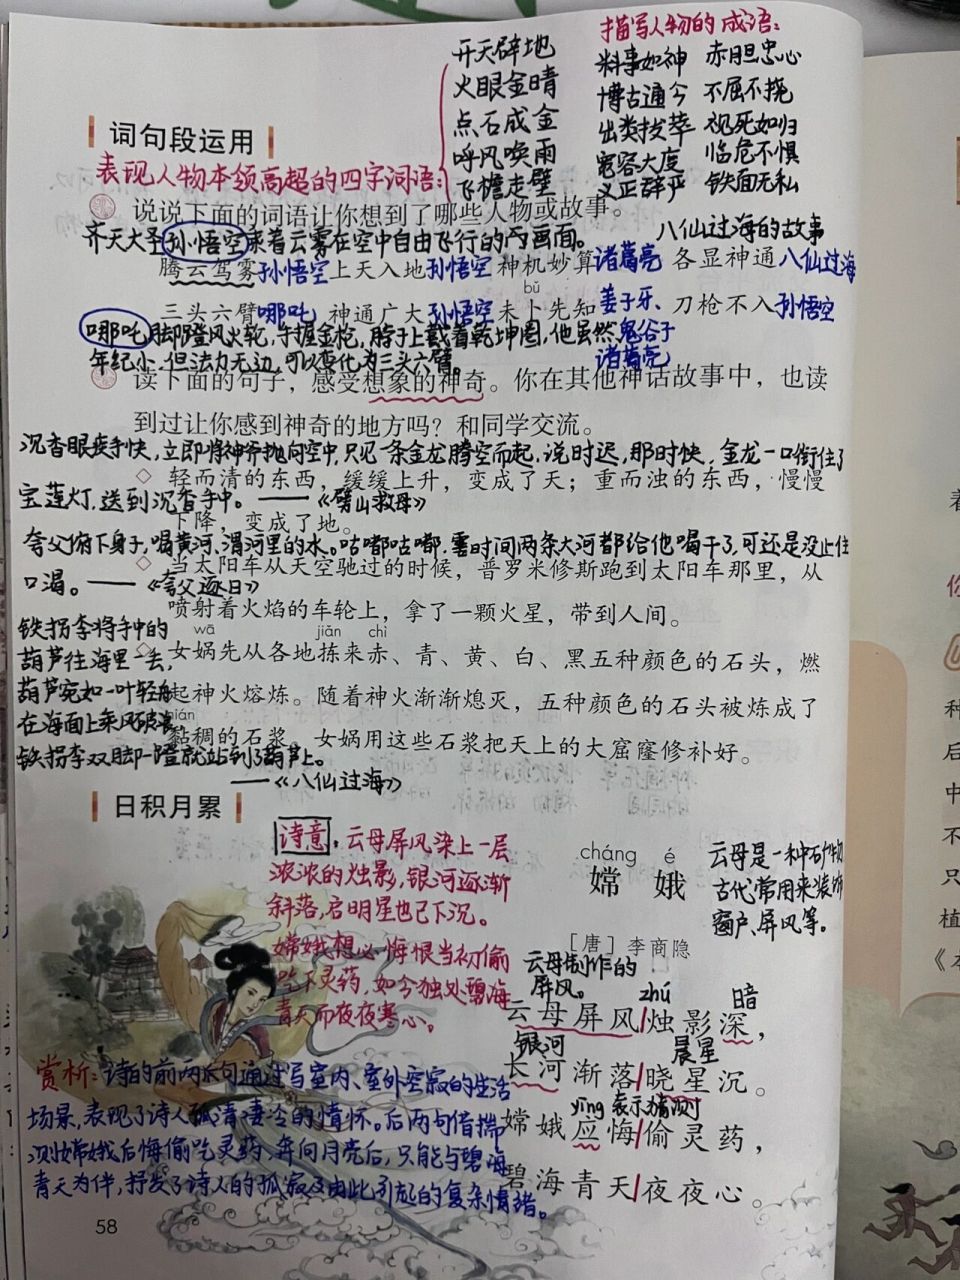 描写人物的成语:
开天辟地
火眼金睛
点石成金
呼风唤雨
飞檐走壁
料事如神 赤胆忠心
博古通今 不屈不挠
出类拔萃 视死如归
宽容大度 临危不惧
义正辞严 铁面无私
词句段运用
表现人物本领高超的四字词语:
说说下面的词语让你想到了哪些人物或故事。
齐天大圣孙悟空乘着云雾在空中自由飞行的画面。
八仙过海的故事
腾云驾雾孙悟空上天入地孙悟空 神机妙算诸葛亮 各显神通八仙过海
bǔ
三头六臂哪吒 神通广大孙悟空未卜先知姜子牙、刀枪不入孙悟空
鬼谷子
诸葛亮
哪吒脚蹬风火轮,手握金枪,脖子上戴着乾坤圈,他虽然
年纪小,但法力无边,可以变化为三头六臂。
读下面的句子,感受想象的神奇。你在其他神话故事中,也读
到过让你感到神奇的地方吗?和同学交流。
沉香眼疾手快,立即将神斧抛向空中,只见一条金龙腾空而起,说时迟,那时快,金龙一口衔住了
宝莲灯,送到沉香手中。——《劈山救母》
轻而清的东西,缓缓上升,变成了天;重而浊的东西,慢慢
下降,变成了地。
夸父俯下身子,喝黄河、渭河里的水。咕嘟咕嘟,霎时间两条大河都给他喝干了,可还是没止住
口渴。——《夸父逐日》
当太阳车从天空驰过的时候,普罗米修斯跑到太阳车那里,从
喷射着火焰的车轮上,拿了一颗火星,带到人间。
wā jiǎn chì
女娲先从各地拣来赤、青、黄、白、黑五种颜色的石头,燃
起神火熔炼。随着神火渐渐熄灭,五种颜色的石头被炼成了
nián
黏稠的石浆。女娲用这些石浆把天上的大窟窿修补好。
铁拐李将手中的
葫芦往海里一丢,
葫芦宛如一叶轻舟
在海面上乘风破浪,
铁拐李双脚一蹬就站到了葫芦上。
——《八仙过海》
日积月累
诗意:云母屏风染上一层
浓浓的烛影,银河逐渐
斜落,启明星也已下沉。
嫦娥想必悔恨当初偷
吃下灵药,如今独处碧海
青天而夜夜寒心。
cháng é
嫦娥
云母是一种矿物
古代常用来装饰
窗户、屏风等。
[唐]李商隐
云母制作的
屏风。
zhú 暗
云母屏风/烛影深,
银河 晨星
长河渐落/晓星沉。
yīng 表示猜测
嫦娥应悔/偷灵药,
碧海青天/夜夜心。
赏析:诗的前两句通过写室内、室外空寂的生活
场景,表现了诗人孤清凄冷的情怀。后两句借揣
测嫦娥后悔偷吃灵药,奔向月亮后,只能与碧海
青天为伴,抒发了诗人的孤寂及由此引起的复杂情绪。
58